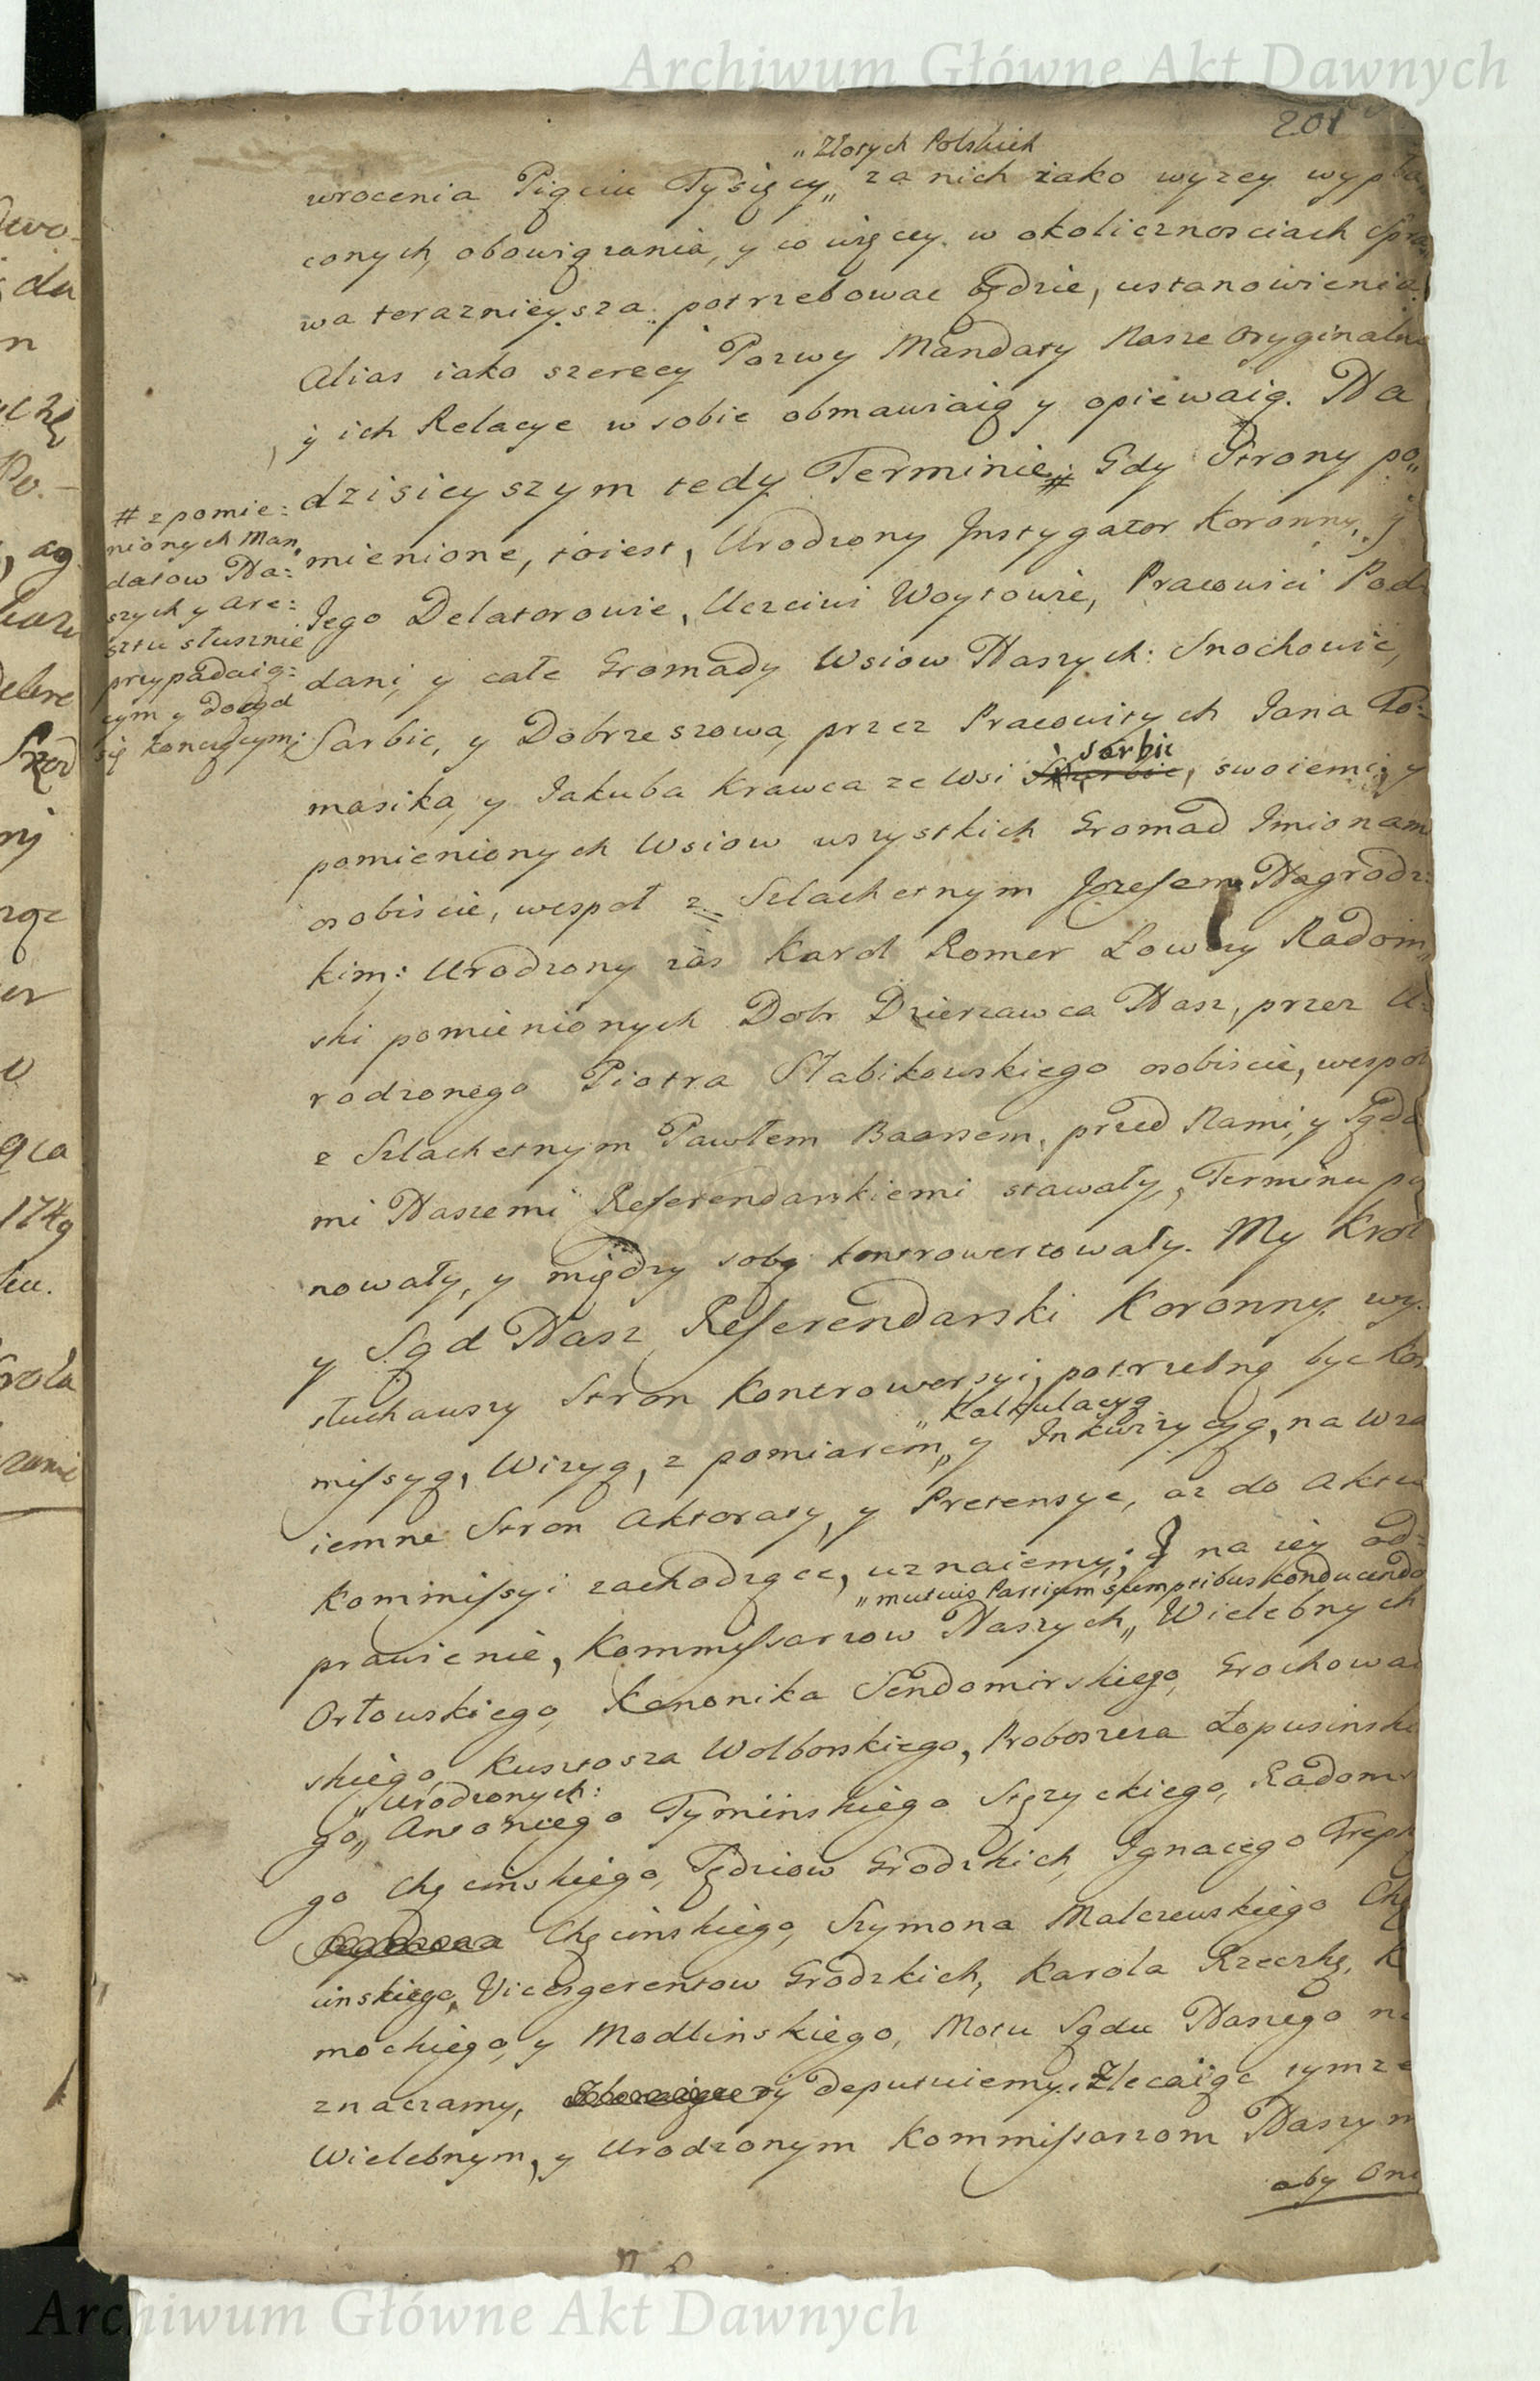 Archiwum Główne Akt Dawnych
201
„Złotych Polskich
wrocenia Pięciu Tysięcy„ za nich iako wyzey wypła„
conych, obowiązania, y co więcey w okolicznosciach Spra„
wa terazнieysza potrzebowac będzie, ustanowienia.
Alias iako szerzey Pozwy Mandaty Nasze Oryginalne
y ich Relacye w sobie obmawiaią y opiewaią. Na
dzisieyszym tedy Terminie # Gdy Strony po„
mienione, to iest, Urodzony Instygator Koronny, y
Jego Delatorowie, Uczciwi Woytowie, Pracowici Pod
dani, y całe Gromady Wsiow Naszych: Snochowic,
Sarbic, y Dobrzeszowa, przez Pracowitych Jana To:
masika, y Jakuba Krawca ze Wsi Sarbic, swoiemi, y
pomienionych Wsiow wszystkich Gromad Jmionam
osobiscie, wespoł z Szlachetnym Jozefem Nagrodz:
kim; Urodzony zas Karol Romer Łowczy Radom
ski pomienionych Dobr Dzierzawca Nasz, przez U:
rodzonego Piotra Słabikowskiego osobiscie, wespoł
z Szlachetnym Pawłem Baarsem, przed Nami, y Sąda
mi Naszemi Referendarskiemi stawały, Terminu pil
nowały, y między sobą kontrowertowały. My Krol
y Sąd Nasz Referendarski Koronny wy:
słuchawszy Stron Kontrowersyi, potrzebną byc Kom
„Kalkulacyą
missyą, Wizyą, z pomiarem„ y Inkwizycyą, na Wza
iemne Stron Aktoraty, y Pretensye, az do Aktu
Kommissyi zachodzące, uznaiemy; Y na iey od:
„mutuis Partium sumptibus konducendo
prawienie, Kommissarzow Naszych„ Wielebnych
Orłowskiego, Kanonika Sendomirskiego, Grochowal
skiego Kustosza Wolborskiego, Proboszcza Łopusinskie
„Urodzonych:
go„ Antoniego Tyminskiego Stęzyckiego, Radoms
go Chęcinskiego, Sędziow Grodzkich, Ignacego Trep
Chęcinskiego, Szymona Malczewskiego Chę
cinskiego, Vicesgerentow Grodzkich, Karola Rzeczkę, K
mockiego, y Modlinskiego, Motu Sądu Naszego na
znaczamy, y deputuiemy. Zlecaiąc tymze
Wielebnym, y Urodzonym Kommissarzom Naszym
aby Oni
# z pomie:
nionych Man„
datow Na:
szych y Are:
sztu słusznie
przypadaią:
cym y dotąd
się koncuącym;
Archiwum Główne Akt Dawnych